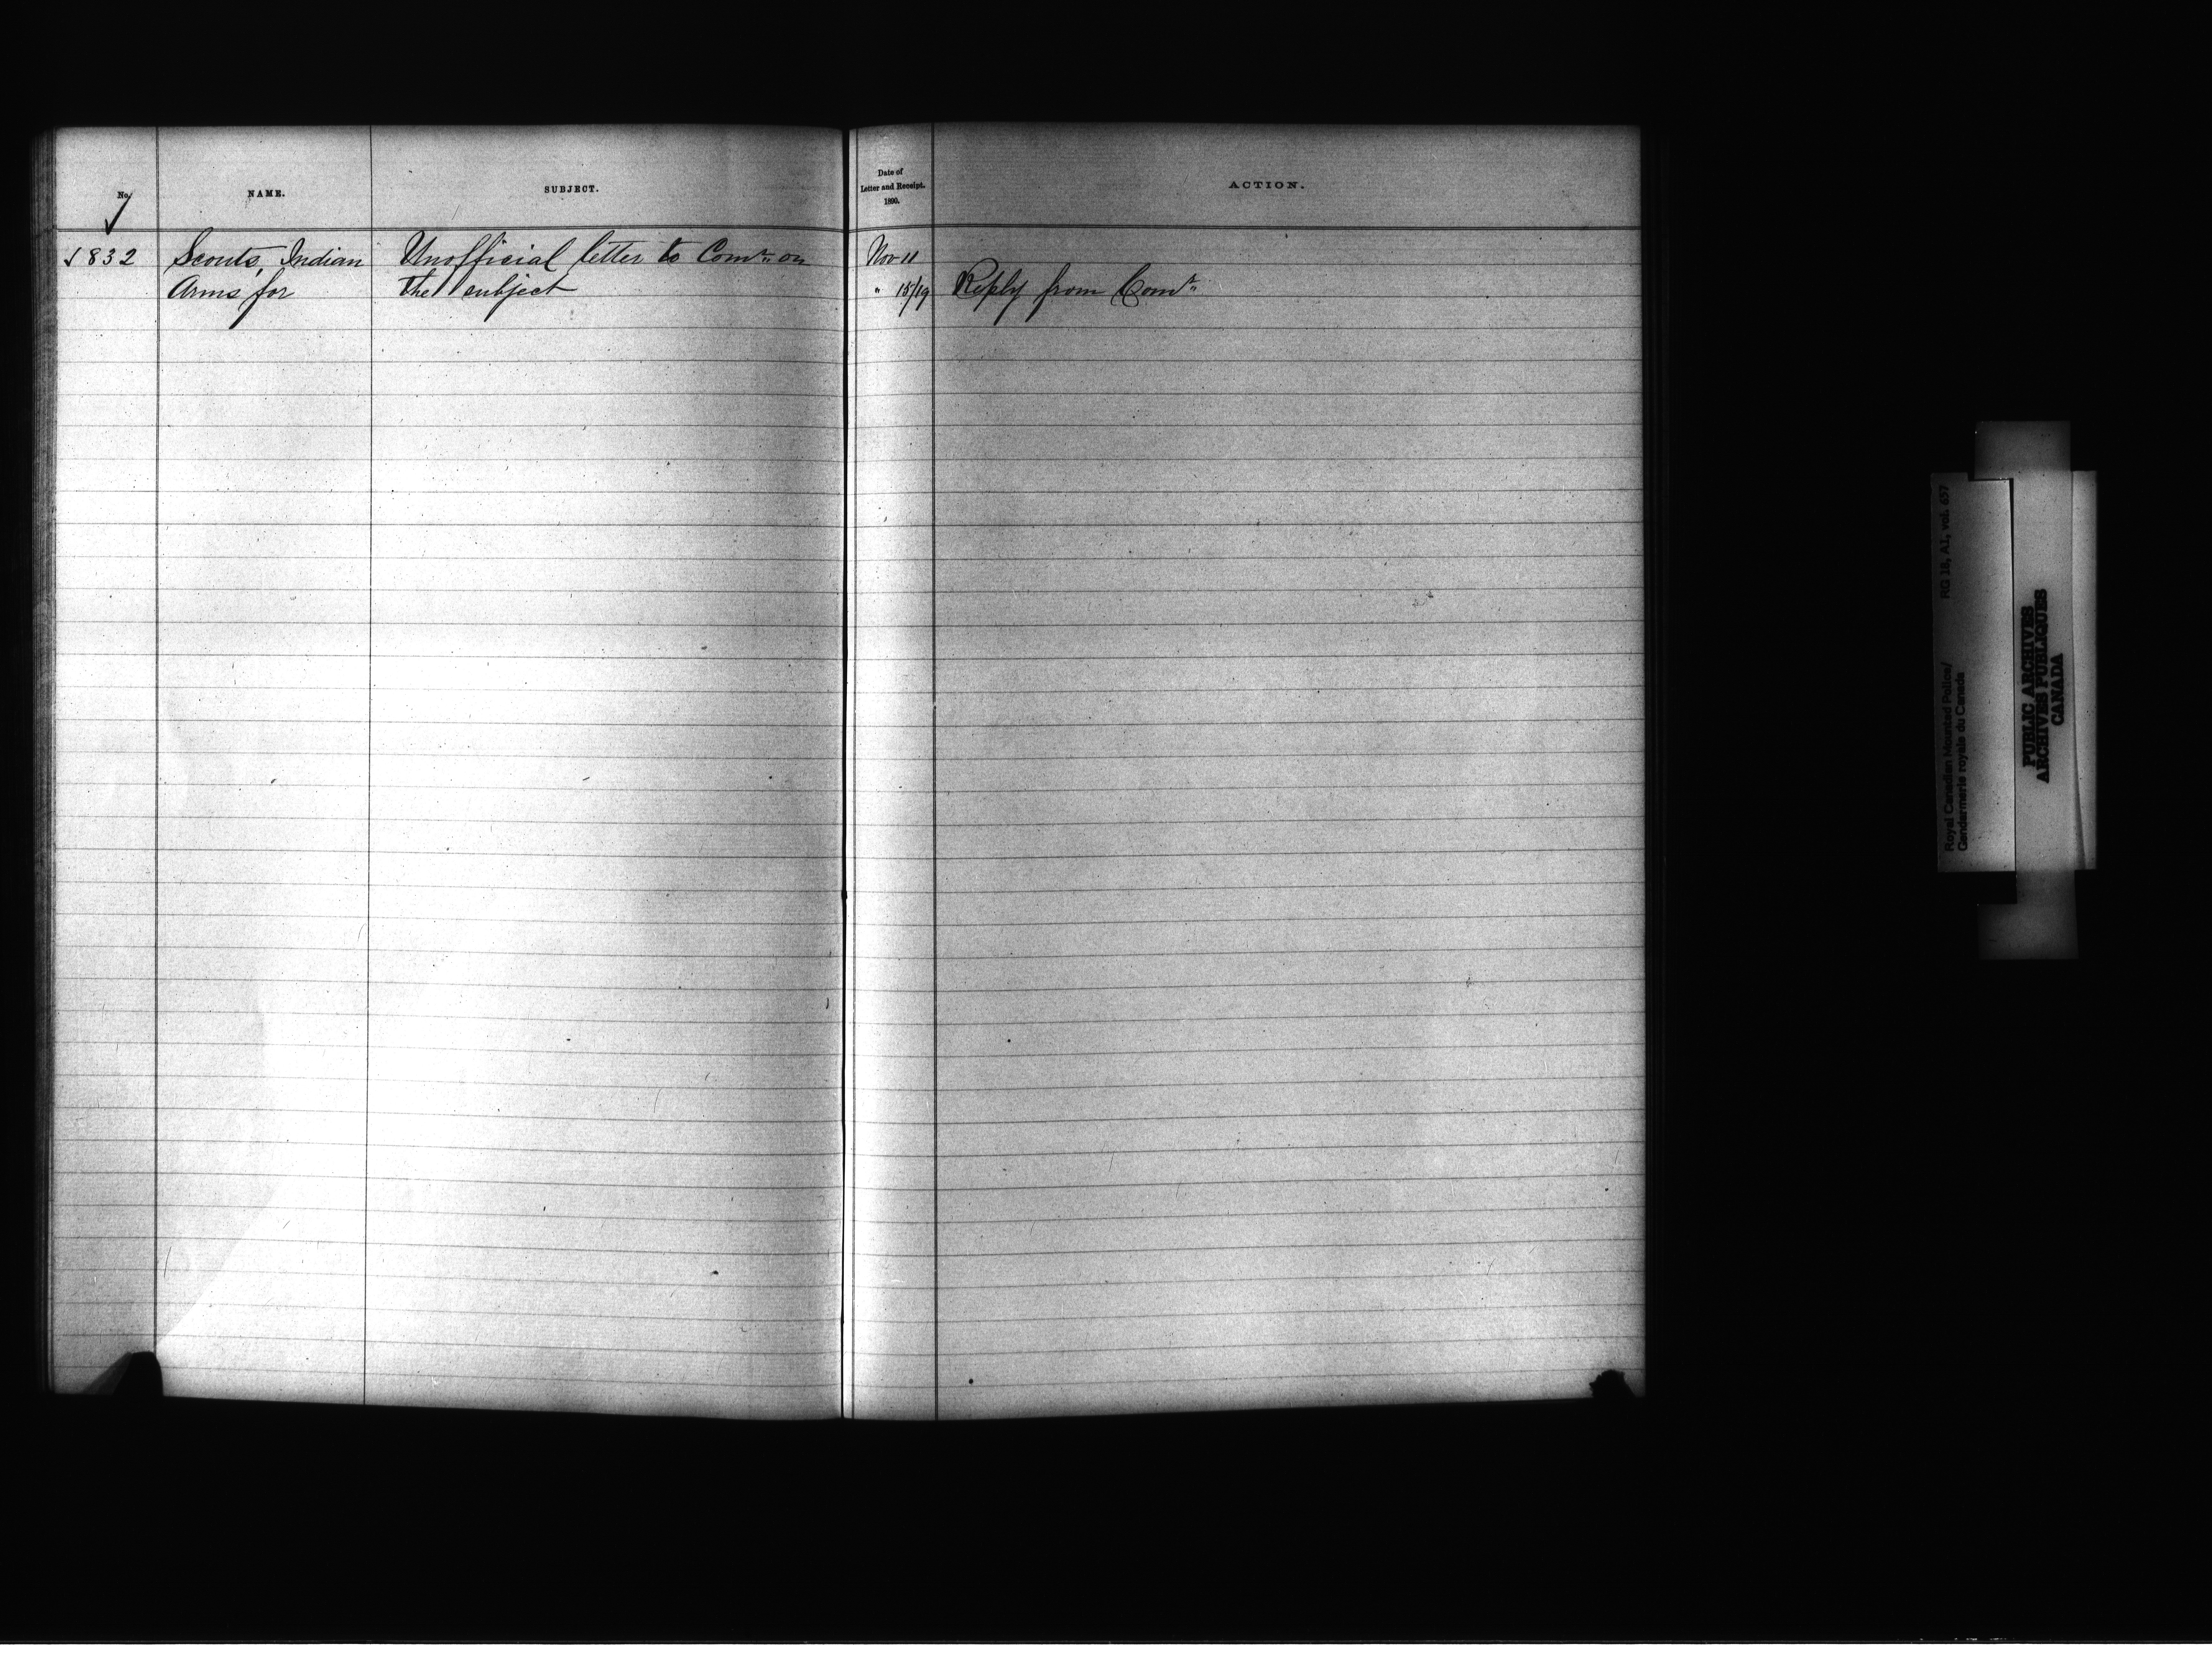 No.
NAME.
SUBJECT.
Date of
Letter and Receipt.
1890.
ACTION.
832 Scouts, Indian Unofficial letter to Comr. on Nov 11
Arms for the subject " 15/19 Reply from Comr.
Royal Canadian Mounted Police/ RG 18, A1, vol. 657
Gendarmerie royale du Canada
PUBLIC ARCHIVES
ARCHIVES PUBLIQUES
CANADA